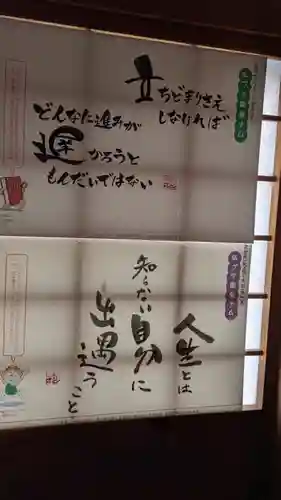 立ちどまりさえ
しなければ
どんなに進みが
遅かろうと
もんだいではない
人生とは
知らない自分に
出遇うこと